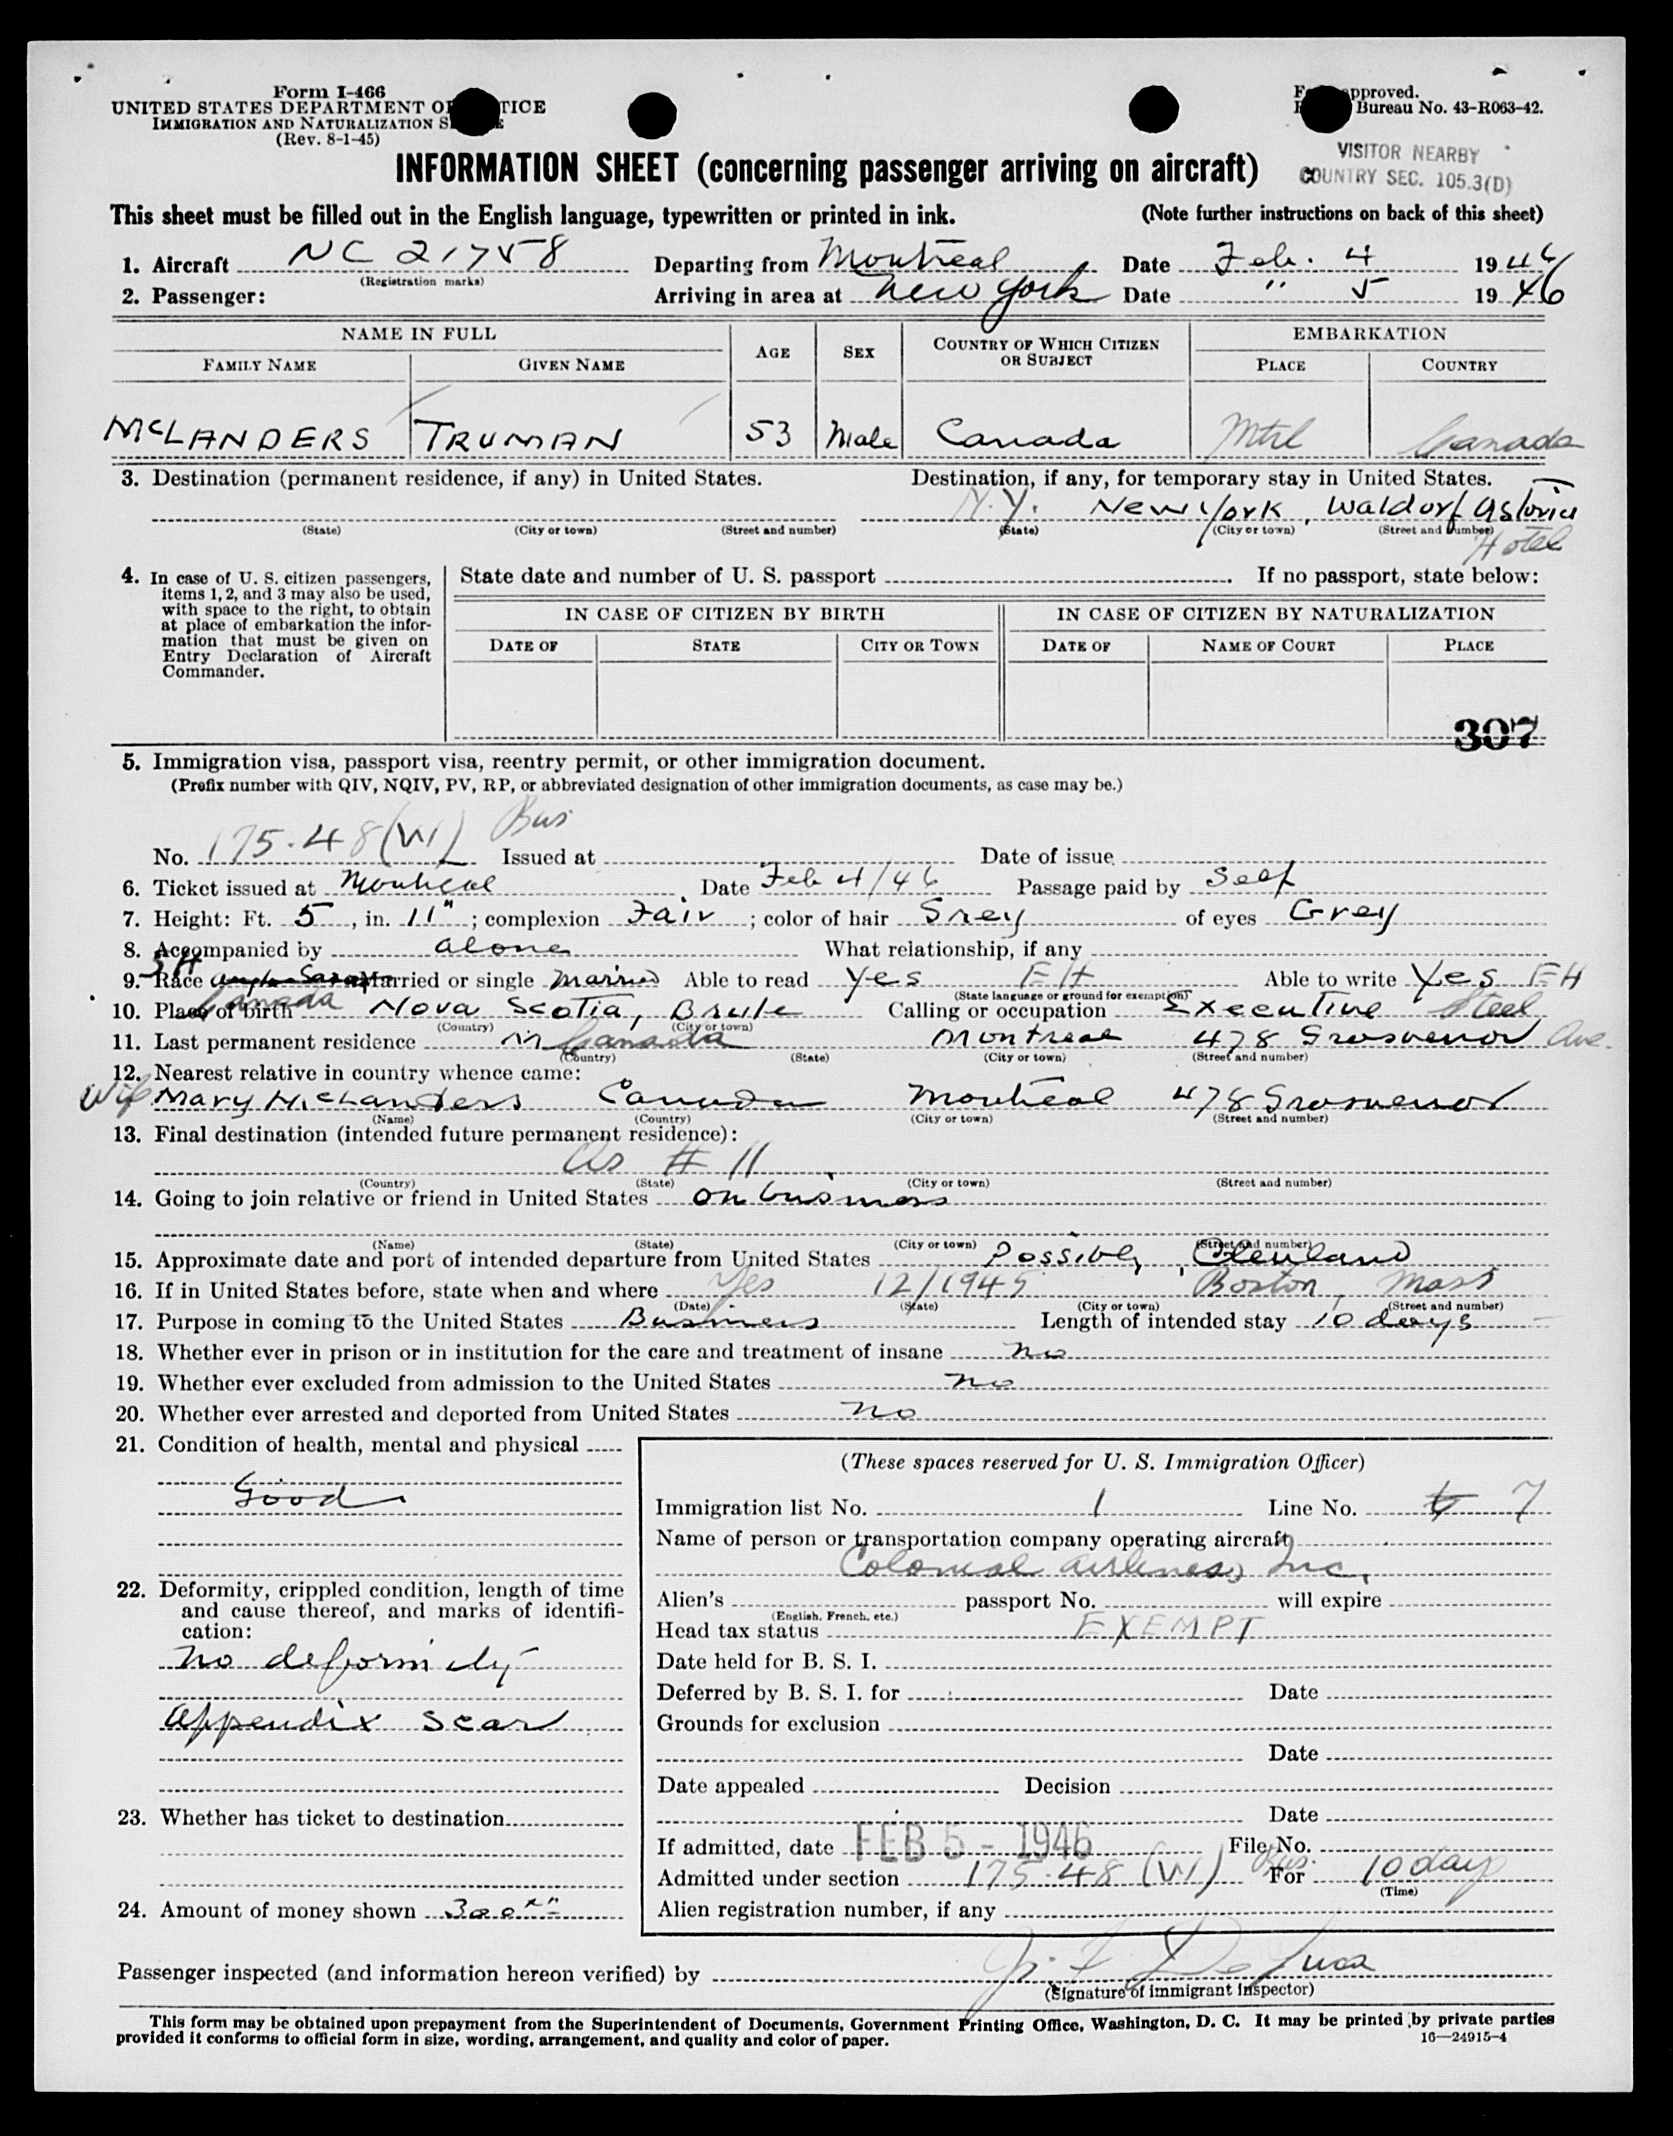 Form I-466
UNITED STATES DEPARTMENT OF JUSTICE
IMMIGRATION AND NATURALIZATION SERVICE
(Rev. 8-1-45)
Form approved.
Bureau No. 43-R063-42.
VISITOR NEARBY
COUNTRY SEC. 105.3(D)
INFORMATION SHEET (concerning passenger arriving on aircraft)
This sheet must be filled out in the English language, typewritten or printed in ink. (Note further instructions on back of this sheet)
1. Aircraft NC 21758 Departing from Montreal Date Feb. 4 1946
(Registration marks)
2. Passenger: Arriving in area at New York Date " 5 1946
NAME IN FULL
FAMILY NAME GIVEN NAME AGE SEX COUNTRY OF WHICH CITIZEN OR SUBJECT EMBARKATION PLACE COUNTRY
McLANDERS TRUMAN 53 Male Canada Mtrl Canada
3. Destination (permanent residence, if any) in United States. Destination, if any, for temporary stay in United States.
N.Y. New York, Waldorf Astoria
(State) (City or town) (Street and number) (State) (City or town) (Street and number)
Hotel
4. In case of U. S. citizen passengers, items 1, 2, and 3 may also be used, with space to the right, to obtain at place of embarkation the information that must be given on Entry Declaration of Aircraft Commander.
State date and number of U. S. passport If no passport, state below:
IN CASE OF CITIZEN BY BIRTH IN CASE OF CITIZEN BY NATURALIZATION
DATE OF STATE CITY OR TOWN DATE OF NAME OF COURT PLACE
307
5. Immigration visa, passport visa, reentry permit, or other immigration document.
(Prefix number with QIV, NQIV, PV, RP, or abbreviated designation of other immigration documents, as case may be.)
No. 175.48(W) Bus Issued at Date of issue
6. Ticket issued at Montreal Date Feb 4/46 Passage paid by Self
7. Height: Ft. 5, in. 11"; complexion Fair; color of hair Grey of eyes Grey
8. Accompanied by alone What relationship, if any
9. Race SH Married or single Married Able to read Yes EH Able to write Yes EH
(State language or ground for exemption)
10. Place of birth Canada Nova Scotia, Brule Calling or occupation Executive Steel
(Country) (City or town)
11. Last permanent residence Canada Montreal 478 Grosvenor Ave.
(Country) (State) (City or town) (Street and number)
12. Nearest relative in country whence came:
Wife Mary McLanders Canada Montreal 478 Grosvenor
(Name) (Country) (City or town) (Street and number)
13. Final destination (intended future permanent residence):
As # 11
(Country) (State) (City or town) (Street and number)
14. Going to join relative or friend in United States on business
(Name) (State) (City or town) (Street and number)
15. Approximate date and port of intended departure from United States Possibly, Cleveland
16. If in United States before, state when and where Yes 12/1945 Boston, Mass
(Date) (State) (City or town) (Street and number)
17. Purpose in coming to the United States Business Length of intended stay 10 days
18. Whether ever in prison or in institution for the care and treatment of insane no
19. Whether ever excluded from admission to the United States no
20. Whether ever arrested and deported from United States no
21. Condition of health, mental and physical
Good
22. Deformity, crippled condition, length of time and cause thereof, and marks of identification:
no deformity
appendix scar
23. Whether has ticket to destination
24. Amount of money shown 300 xx
(These spaces reserved for U. S. Immigration Officer)
Immigration list No. 1 Line No. 7
Name of person or transportation company operating aircraft
Colonial Airlines, Inc.
Alien's passport No. will expire
(English, French, etc.)
Head tax status EXEMPT
Date held for B. S. I.
Deferred by B. S. I. for Date
Grounds for exclusion
Date
Date appealed Decision
Date
If admitted, date FEB 5 - 1946 File No.
Admitted under section 175.48 (W) Bus. For 10 days
(Time)
Alien registration number, if any
Passenger inspected (and information hereon verified) by J. F. DeLuca
(Signature of immigrant inspector)
This form may be obtained upon prepayment from the Superintendent of Documents, Government Printing Office, Washington, D. C. It may be printed by private parties
provided it conforms to official form in size, wording, arrangement, and quality and color of paper. 16—24915-4